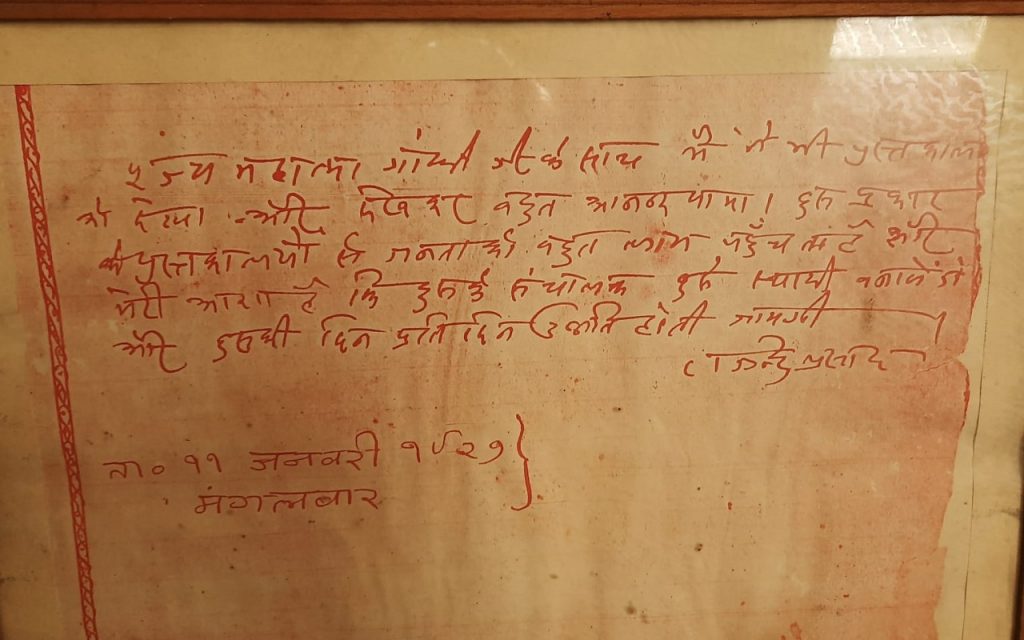 पूज्य महात्मा गांधी जी के साथ मैं ने भी पुस्तकालय
को देखा और देखकर बहुत आनन्द पाया। इस प्रकार
के पुस्तकालयों से जनता को बहुत लाभ पहुँचता है और
मेरी आशा है कि इसके संचालक इसे स्थायी बनावेंगे
और इसकी दिन प्रतिदिन उन्नति होती जायगी।
राजेन्द्र प्रसाद
ता० ११ जनवरी १९२७
मंगलबार